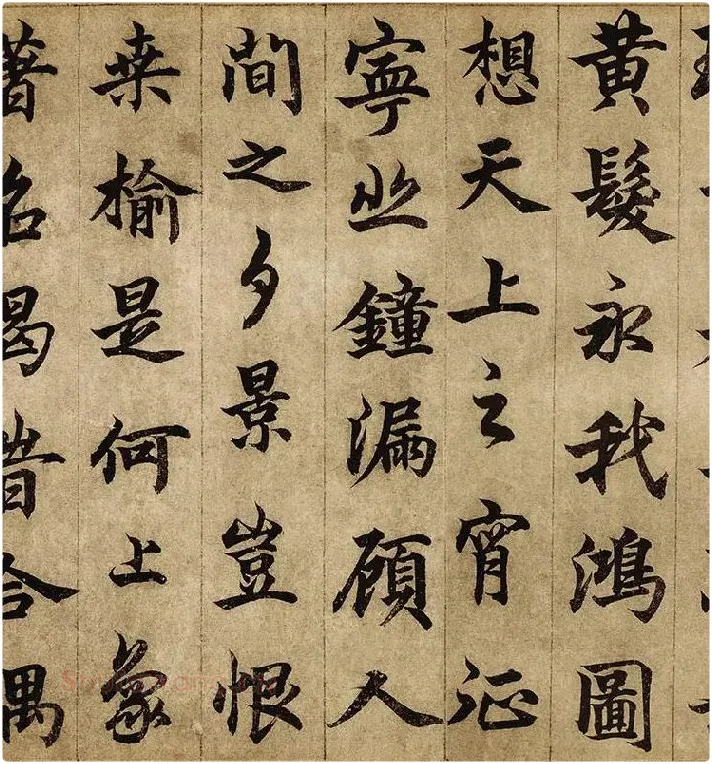 黃髮永我鴻圖
想天上之宵征
寧鐘漏顧人
間之夕景豈恨
桑榆是何上象
著